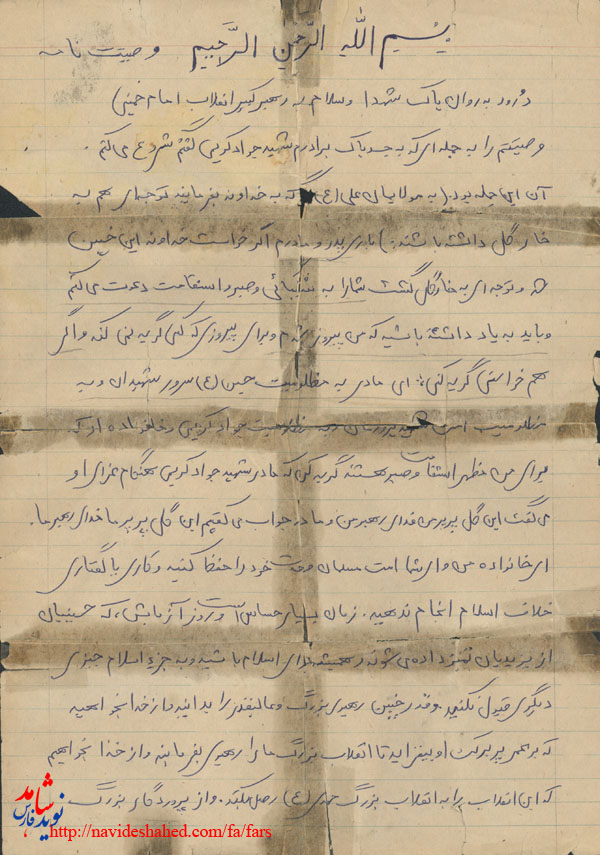 بِسْمِ اللّٰهِ الرَّحْمٰنِ الرَّحِیْمِ وصیت نامه
درود به روان پاک شهدا و سلام به رهبر کبیر انقلاب امام خمینی
وصیتم را به جمله ای که به جسد پاک برادرم شهید جواد کریمی گفتم شروع می کنم .
آن این جمله بود ( به مولایمان علی (ع) که به خداوند بفرمایید توجه ای هم به
خار گل داشته باشند ) باری پدر و مادرم اگر خواست خداوند این چنین
شد و توجه ای به خار گل گشت شما را به شکیبائی و صبر و استقامت دعوت می کنم
و باید به یاد داشته باشید که من پیروز شدم و برای پیروزی که کسی گریه نمی کند و اگر
هم خواستی گریه کنی ای مادر به مظلومیت حسین (ع) سرور شهیدان و به
مظلومیت امت جواد کریمی و خانواده او که
برای من مظهر استقامت و صبر هستند گریه کن که مادر شهید جواد کریمی هنگام عزای او
می گفت این گل پرپر من فدای رهبر من و ما در جواب می گفتیم این گل پرپر ما فدای رهبر ما.
ای خانواده من و ای شما امت مسلمان وحدت خود را حفظ کنید و کاری یا گفتاری
خلاف اسلام انجام ندهید. زمان بسیار حساس است و روز آزمایش، که حسینیان
از یزیدیان تمیز داده می شوند و همیشه برای اسلام باشید و به جزء اسلام چیزی
دیگری قبول نکنید. و قدر چنین رهبری بزرگ و عالیقدر را بدانید و از خدا بخواهید
که بر عمر پر برکت او بیفزاید تا انقلاب بزرگ ما را رهبری بفرمایند و از خدا بخواهیم
که این انقلاب را به انقلاب بزرگ مهدی (ع) وصل بکند. و از پروردگار بزرگ
نوید شاهد فارس
http://navideshahed.com/fa/fars